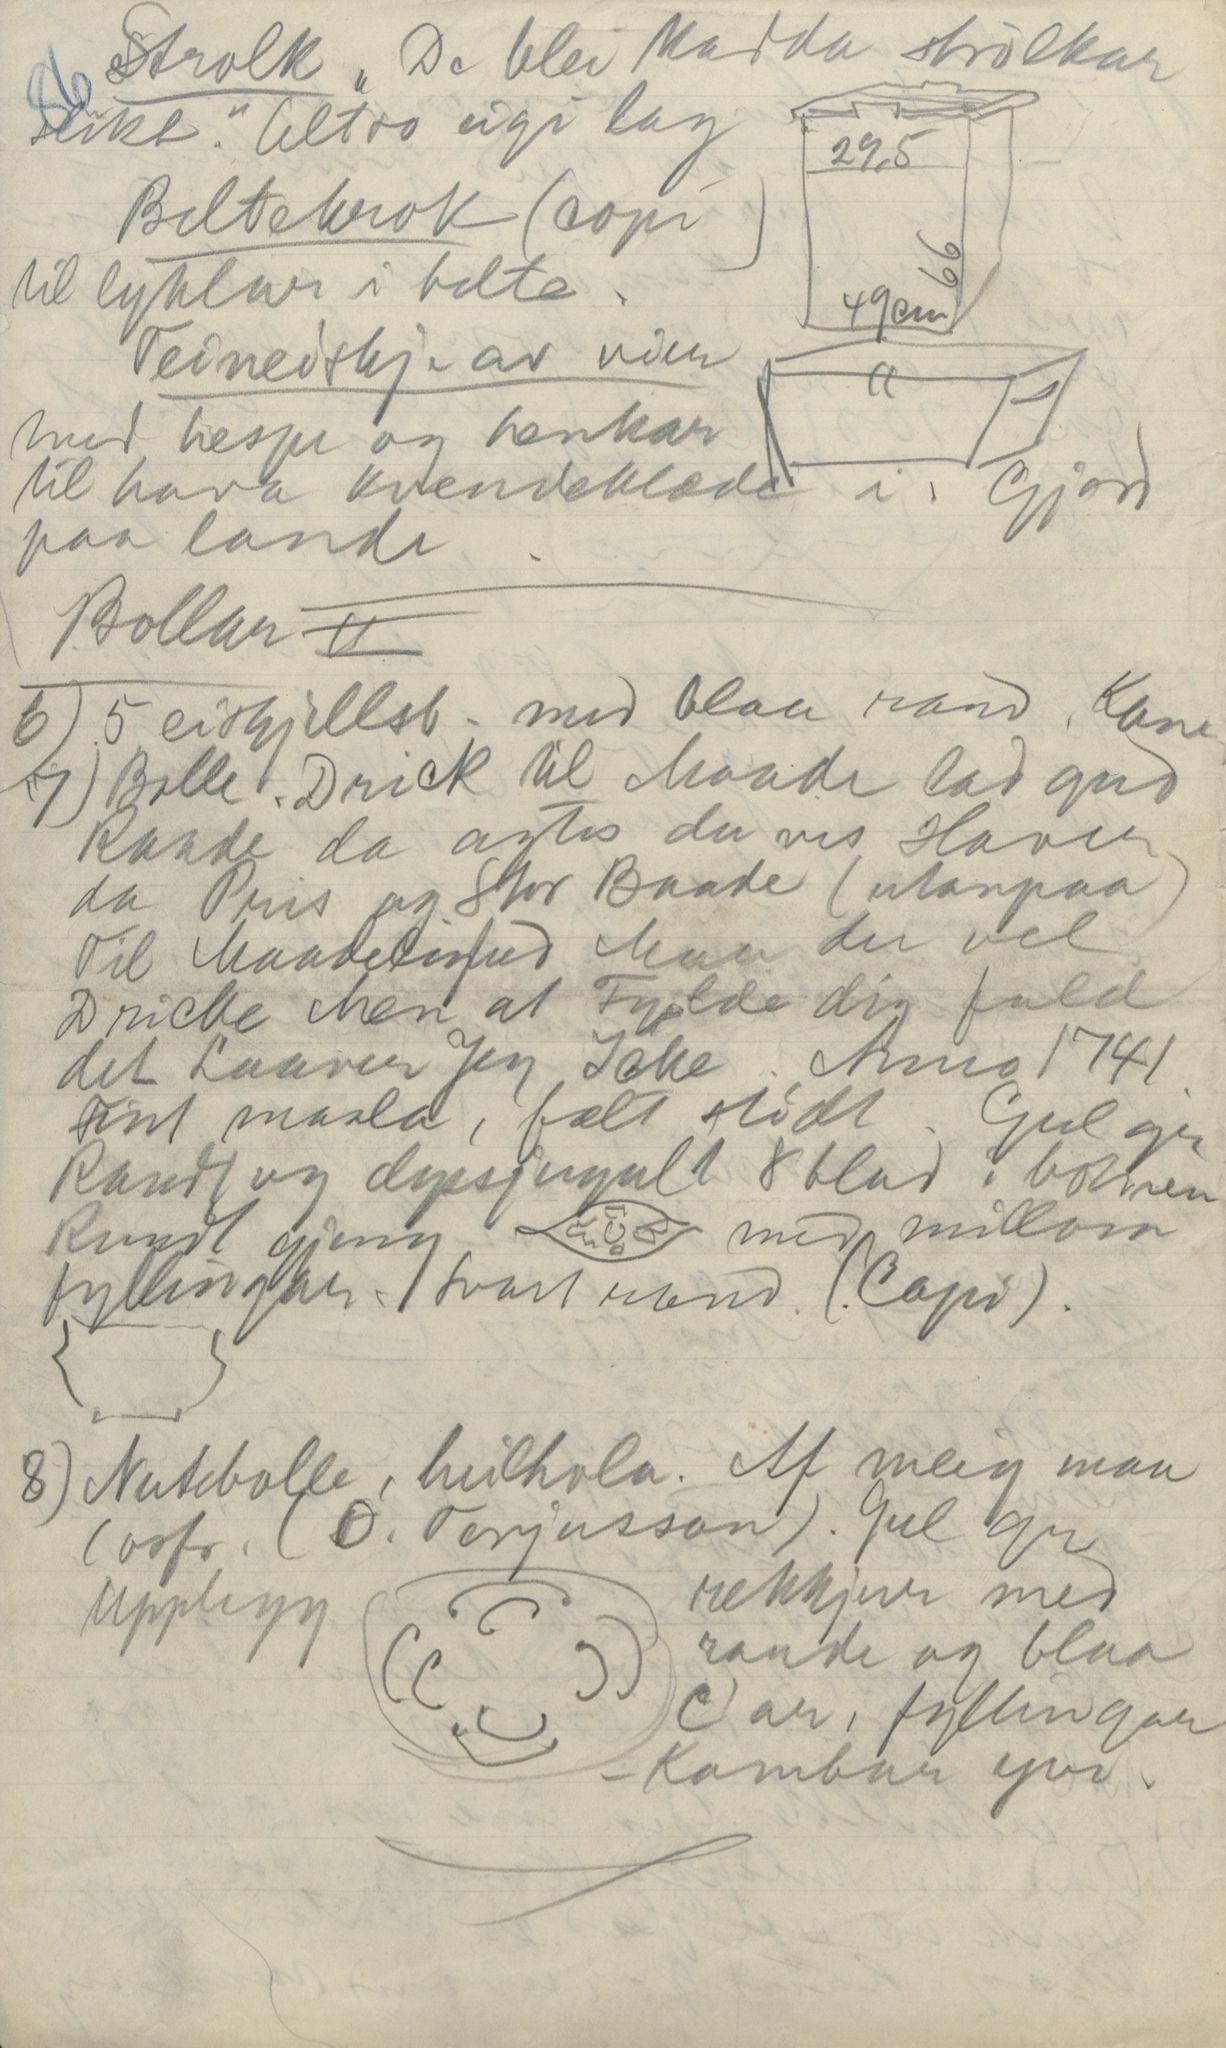 86
Strolk „De blei Madda strolkar
slike." Utro eigi lag
29,5
66
49cm
Beltekrok (copi)
til lyklar i belte.
Teineiskj. av vier
med hespe og henkar
til hava kvendeklæde i. Gjord
paa lande
Bollar II
6) 5 eiskjellsb. med blaa rand. Kane
7) Bolle. Drick til Maade lad gud
Raade da agtes du vis Haver
da Pris og Stor Baade (utanpaa)
Til Maade Maa du vel
Dricke Men at Fylde dig fuld
det Laaver Jeg Icke. Anno 1741
Fint maala, falt stödt. Gul gr
Rand og 8 blad i botnen
Rundt gjeng med millom
fyllingar. Svart rand. (Copi).
8) Nutebolle, heilhola. Af meig maa
(osfr. (O. Terjusson). Gul gr
Upplegg rekkjur med
raude og blaa
C ar, fyllingar
Kambar yvi.